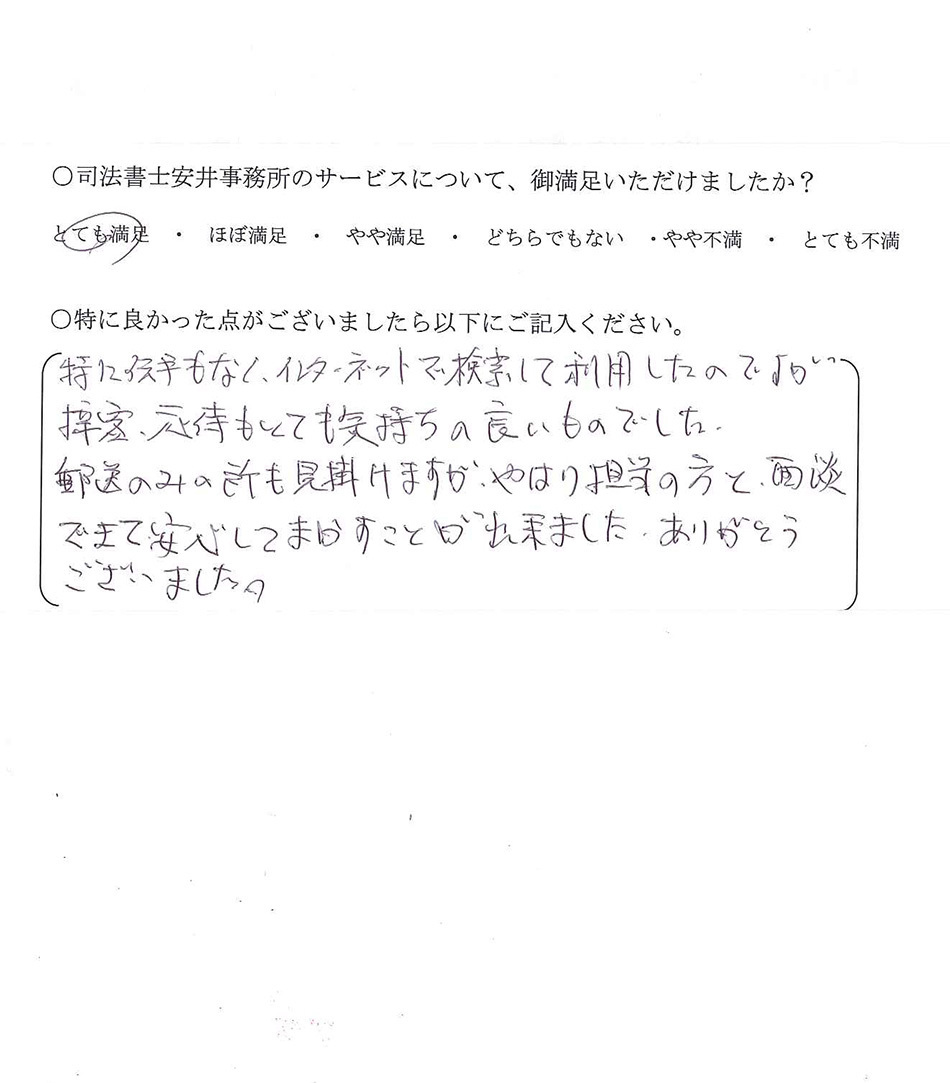 〇司法書士安井事務所のサービスについて、御満足いただけましたか？
とても満足 ・ ほぼ満足 ・ やや満足 ・ どちらでもない ・やや不満 ・ とても不満
〇特に良かった点がございましたら以下にご記入ください。
特に伝手もなく、インターネットで検索して利用したのですが
接客、応待もとても気持ちの良いものでした。
郵送のみの所も見掛けますが、やはり担当の方と、面談
できて安心してまかすことが出来ました。ありがとう
ございました。